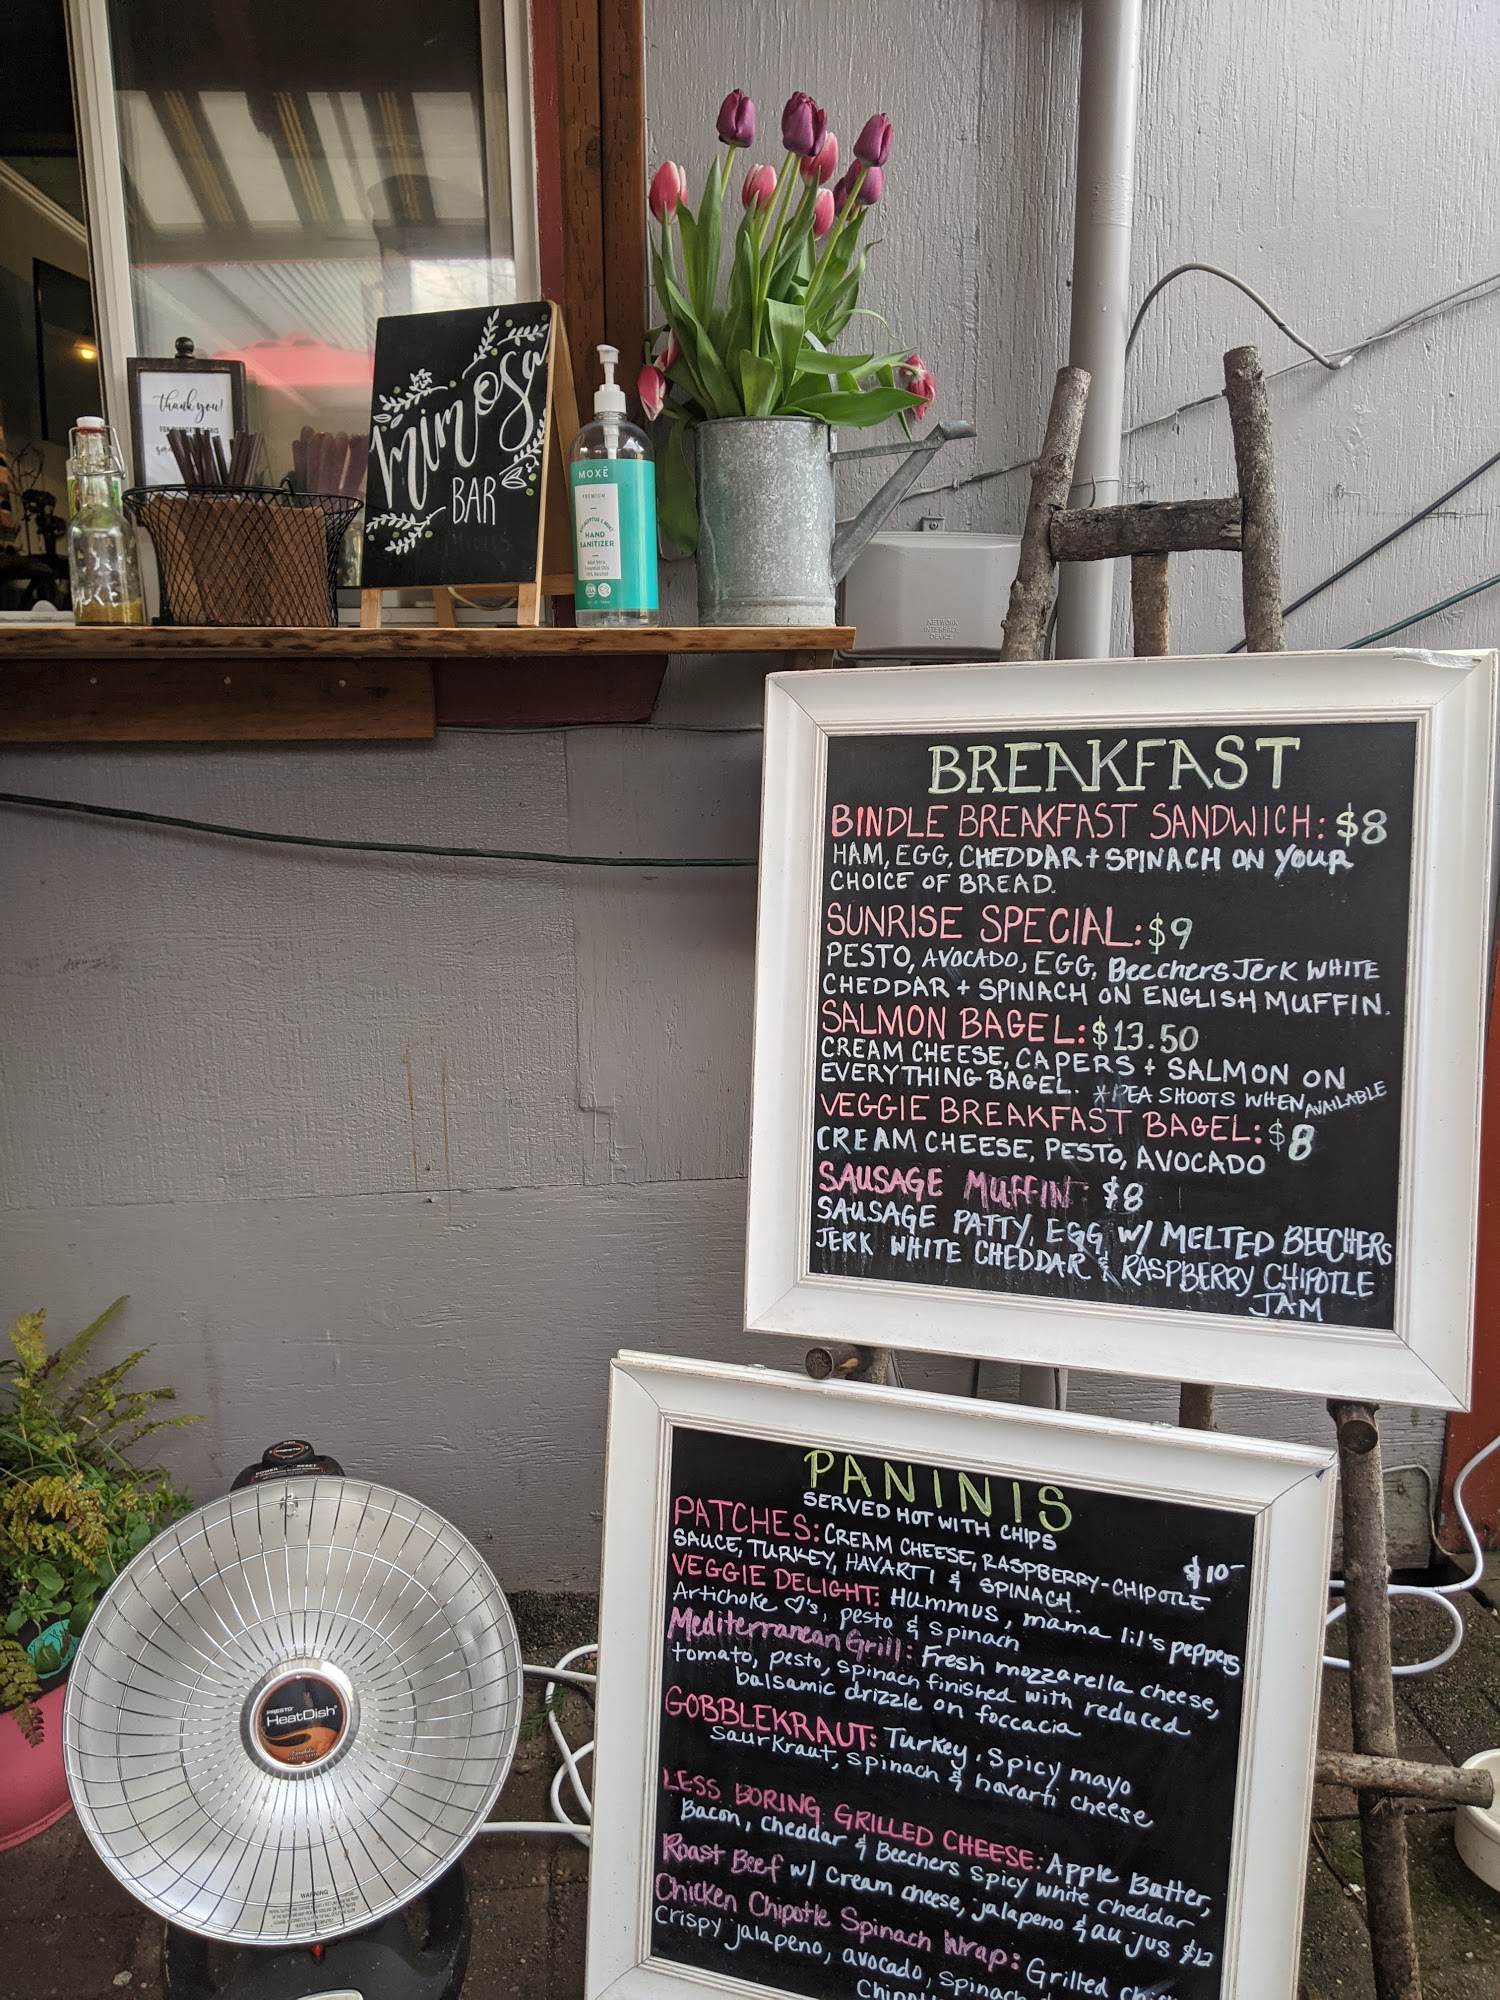 thank you!
mimosa
BAR
MOXĒ
PREMIUM
EUCALYPTUS & MINT
HAND
SANITIZER
Aloe Vera
Essential Oils
70% Alcohol
NETWORK
INTERFACE
DEVICE
BREAKFAST
BINDLE BREAKFAST SANDWICH: $8
HAM, EGG, CHEDDAR + SPINACH ON YOUR
CHOICE OF BREAD.
SUNRISE SPECIAL: $9
PESTO, AVOCADO, EGG, BeecHers JerK WHITE
CHEDDAR + SPINACH ON ENGLISH MUFFIN.
SALMON BAGEL: $13.50
CREAM CHEESE, CAPERS + SALMON ON
EVERYTHING BAGEL. *PEA SHOOTS WHEN AVAILABLE
VEGGIE BREAKFAST BAGEL: $8
CREAM CHEESE, PESTO, AVOCADO
SAUSAGE MUFFIN: $8
SAUSAGE PATTY, EGG, W/ MELTED BEECHERS
JERK WHITE CHEDDAR & RASPBERRY CHIPOTLE
JAM
PANINIS
SERVED HOT WITH CHIPS
PATCHES: CREAM CHEESE, RASPBERRY-CHIPOTLE $10-
SAUCE, TURKEY, HAVARTI & SPINACH.
VEGGIE DELIGHT: HUMMUS, mama lil's peppers
Artichoke ♡'s, pesto & spinach
Mediterranean Grill: Fresh mozzarella cheese,
tomato, pesto, spinach finished with reduced
balsamic drizzle on foccacia
GOBBLEKRAUT: Turkey, Spicy mayo
Saurkraut, spinach & havarti cheese
LESS BORING GRILLED CHEESE: Apple Butter,
Bacon, cheddar & Beechers spicy white cheddar
Roast Beef w/ cream cheese, jalapeno & au jus $12
Chicken Chipotle Spinach Wrap: Grilled
Crispy jalapeno, avocado, spinach
POWER RESET
PRESTO
HeatDish
WARNING